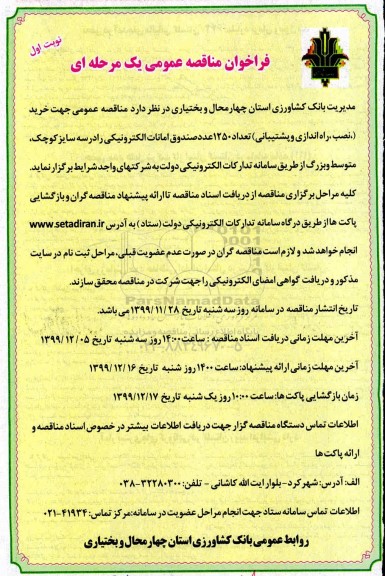 نوبت اول
فراخوان مناقصه عمومی یک مرحله ای
مدیریت بانک کشاورزی استان چهارمحال و بختیاری در نظر دارد مناقصه عمومی جهت خرید
(،نصب، راه اندازی و پشتیبانی) تعداد ۱۲۵۰عدد صندوق امانات الکترونیکی را در سه سایز کوچک،
متوسط وبزرگ از طریق سامانه تدارکات الکترونیکی دولت به شرکتهای واجد شرایط برگزار نماید.
کلیه مراحل برگزاری مناقصه از دریافت اسناد مناقصه تا ارائه پیشنهاد مناقصه گران و بازگشایی
پاکت ها از طریق درگاه سامانه تدارکات الکترونیکی دولت (ستاد ) به آدرس www.setadiran.ir
انجام خواهد شد و لازم است مناقصه گران در صورت عدم عضویت قبلی، مراحل ثبت نام در سایت
مذکور و دریافت گواهی امضای الکترونیکی را جهت شرکت در مناقصه محقق سازند.
ParsNamadData
تاریخ انتشار مناقصه در سامانه روز سه شنبه تاریخ ۱۳۹۹/۱۱/۲۸ می باشد.
آخرین مهلت زمانی دریافت اسناد مناقصه : ساعت ۱۴:۰۰ روز سه شنبه تاریخ ۱۳۹۹/۱۲/۰۵
آخرین مهلت زمانی ارائه پیشنهاد: ساعت ۱۴:۰۰ روز شنبه تاریخ ۱۳۹۹/۱۲/۱۶
زمان بازگشایی پاکت ها: ساعت ۱۰:۰۰ روز یک شنبه تاریخ ۱۳۹۹/۱۲/۱۷
اطلاعات تماس دستگاه مناقصه گزار جهت دریافت اطلاعات بیشتر در خصوص اسناد مناقصه و
ارائه پاکت ها
الف: آدرس: شهرکرد – بلوار ایت الله کاشانی – تلفن: ۳۲۲۸۰۳۰۰-۰۳۸
اطلاعات تماس سامانه ستاد جهت انجام مراحل عضویت در سامانه:مرکز تماس: ۴۱۹۳۴-۰۲۱
روابط عمومی بانک کشاورزی استان چهارمحال و بختیاری